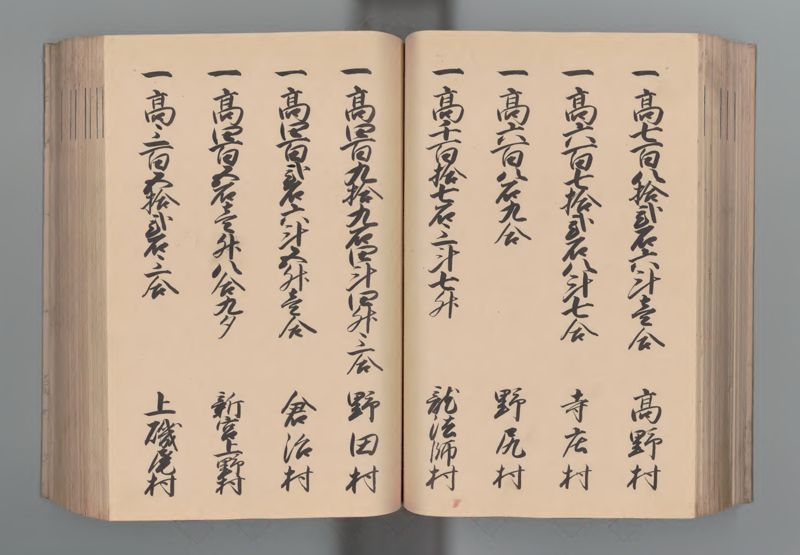 一高七百八拾弐石六斗壱合 高野村
一高六百七拾弐石八斗七合 寺庄村
一高六百八石九合 野尻村
一高千百拾七石三斗七升 龍法師村
一高四百九拾九石四斗四升三合 野田村
一高四百弐石六斗五升壱合 倉治村
一高四百五石壱升八合九夕 新宮上野村
一高三百五拾弐石三合 上磯尾村